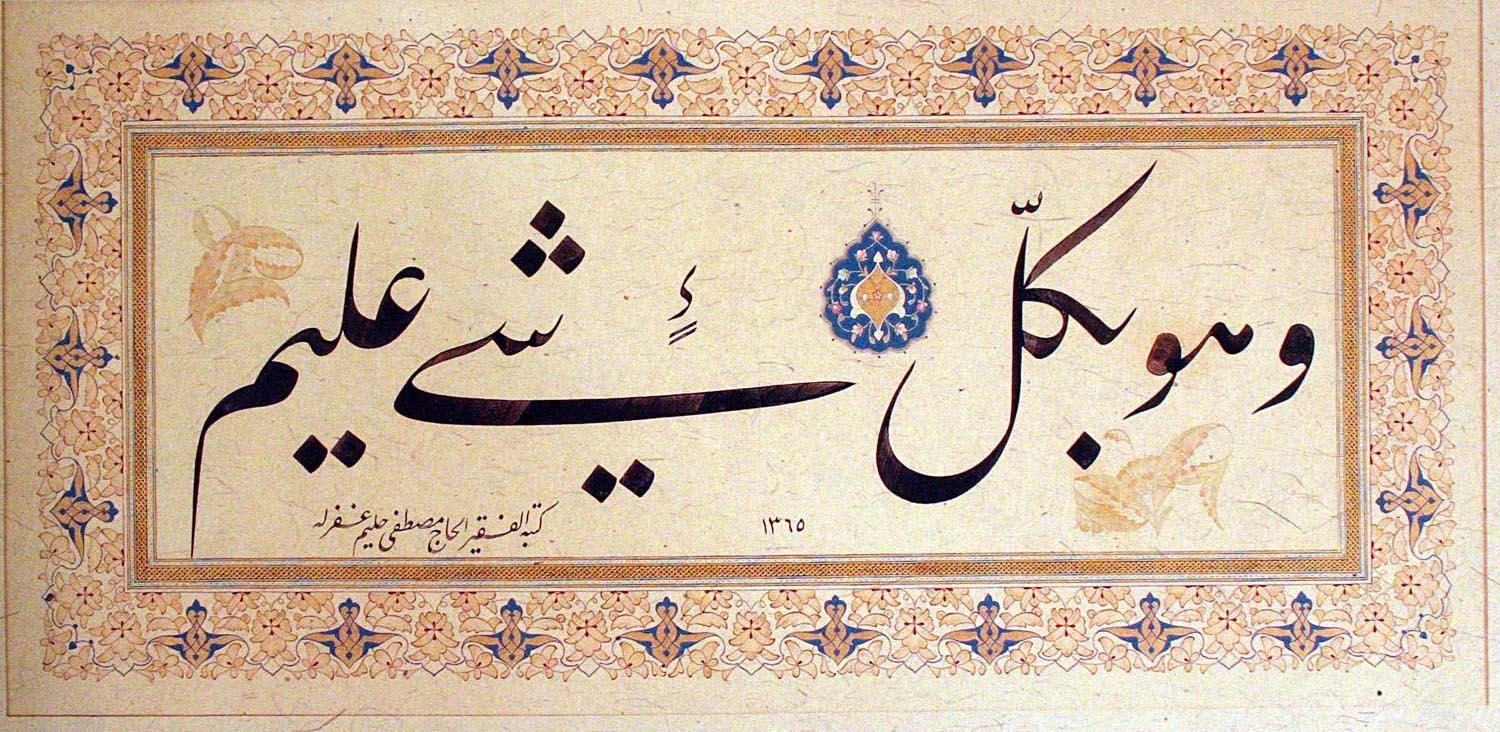 وهو بكلّ شيءٍ عليم
١٣٦٥
كتبه الفقير الحاج مصطفى حليم غفر له